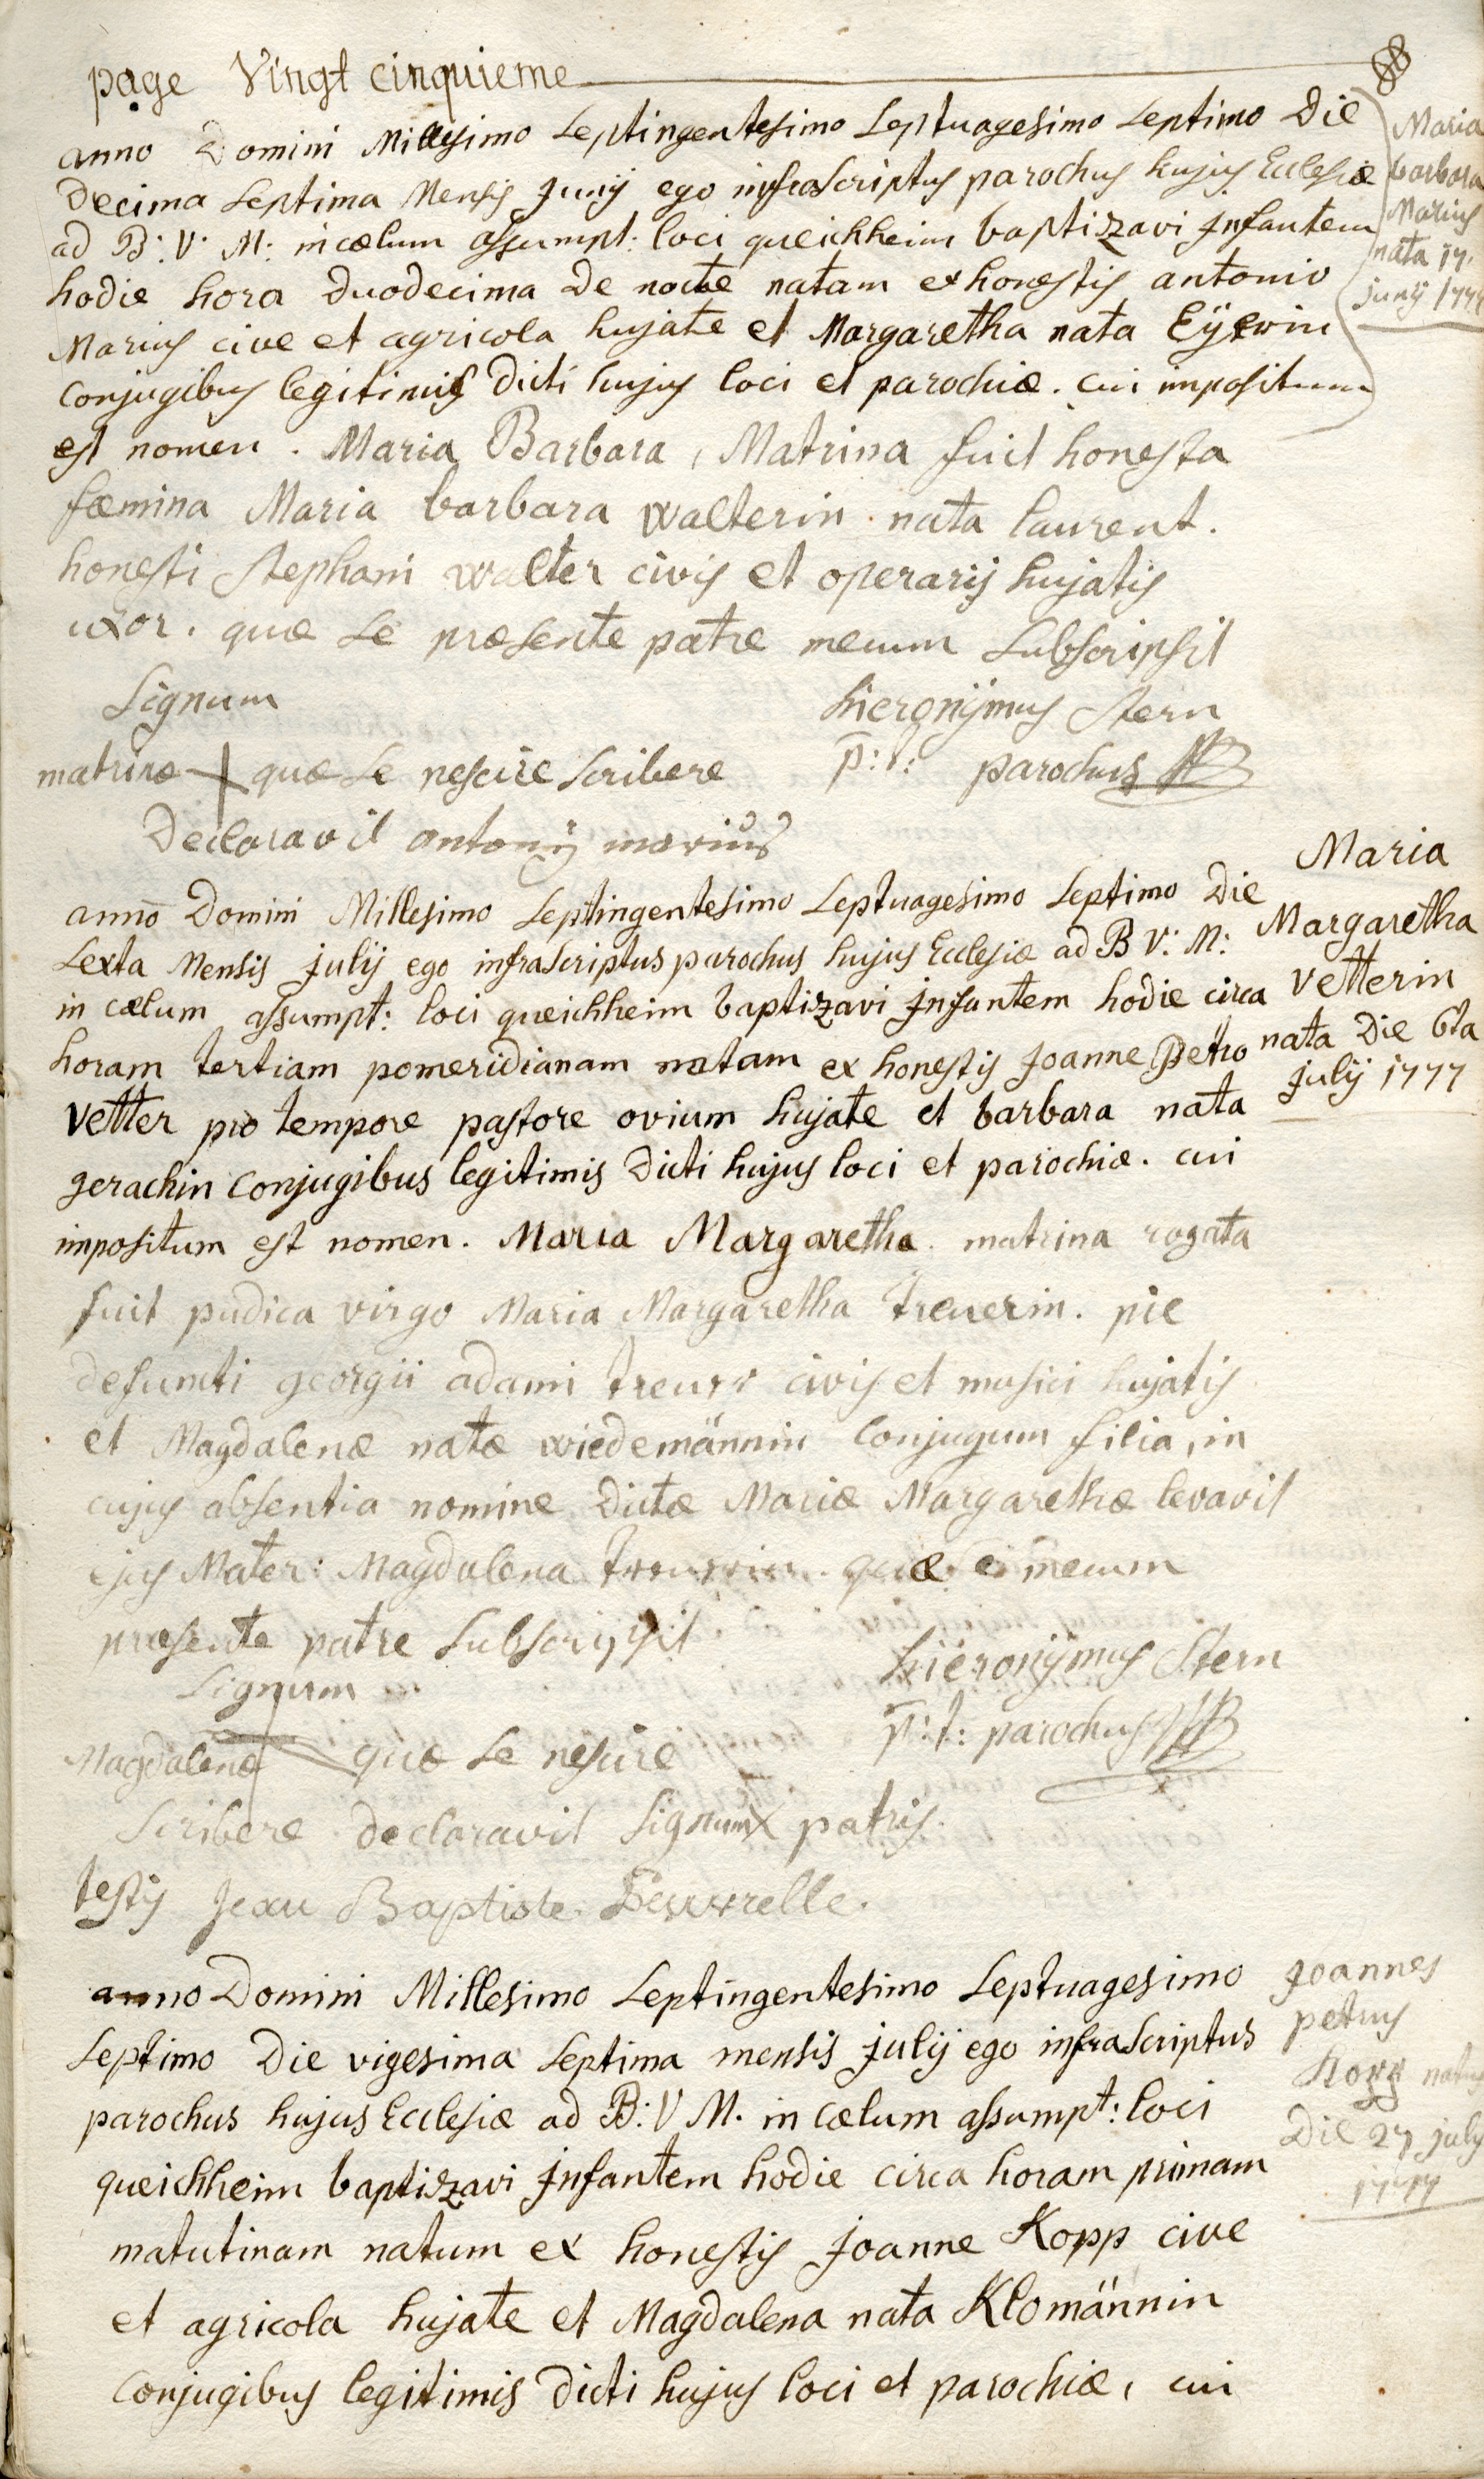 page Vingt cinquieme
anno Domini Millesimo Septingentesimo Septuagesimo Septimo Die
Decima Septima Mensis Junij ego infrascriptus parochus hujus Ecclesiæ
ad B: V: M: in cælum assumpt: loci queichheim baptizavi Infantem
hodie hora duodecima de nocte natam ex honestis antonio
Marius cive et agricola hujate et Margaretha nata Eÿerin
conjugibus legitimis dicti hujus loci et parochiæ. cui impositum
est nomen. Maria Barbara, Matrina fuit honesta
fæmina Maria barbara walterin nata laurent.
honesti Stephani walter civis et operarij hujatis
uxor. quæ se præsente patre mecum subscripsit
Signum
matrinæ quæ se nescire scribere
Declaravit antonÿ marius
hieronÿmus Stern
p: t: parochus
Maria
barbara
Marius
nata 17.
junij
anno Domini Millesimo Septingentesimo Septuagesimo Septimo Die
Sexta Mensis julij ego infrascriptus parochus hujus Ecclesiæ ad B V: M:
in cælum assumpt: loci queichheim baptizavi Infantem hodie circa
horam tertiam pomeridianam natam ex honestis Joanne Petro
Vetter pro tempore pastore ovium hujate et barbara nata
gerachin conjugibus legitimis dicti hujus loci et parochiæ. cui
impositum est nomen. Maria Margaretha. matrina rogata
fuit pudica virgo Maria Margaretha treuerin. pie
defuncti georgii adami treuer civis et musici hujatis
et Magdalenæ natæ wiedemännin Conjugum filia, in
cujus absentia nomine dictæ Mariæ Margarethæ levavit
ejus Mater: Magdalena treuerin. quæ mecum
præsente patre subscripsit
Signum
Magdalenæ quæ se nescire
scribere declaravit Signum x patris.
testis Jean Baptiste
hiëronÿmus Stern
p: t: parochus
Maria
Margaretha
Vetterin
nata Die 6ta
julij 1777
anno Domini Millesimo Septingentesimo Septuagesimo
Septimo Die vigesima Septima mensis julij ego infrascriptus
parochus hujus Ecclesiæ ad B: V M. in cælum assumpt: loci
queichheim baptizavi Infantem hodie circa horam primam
matutinam natum ex honestis Joanne Kopp cive
et agricola hujate et Magdalena nata Klomännin
conjugibus legitimis dicti hujus loci et parochiæ, cui
Joannes
petrus
Kopp natus
Die 27 july
1777